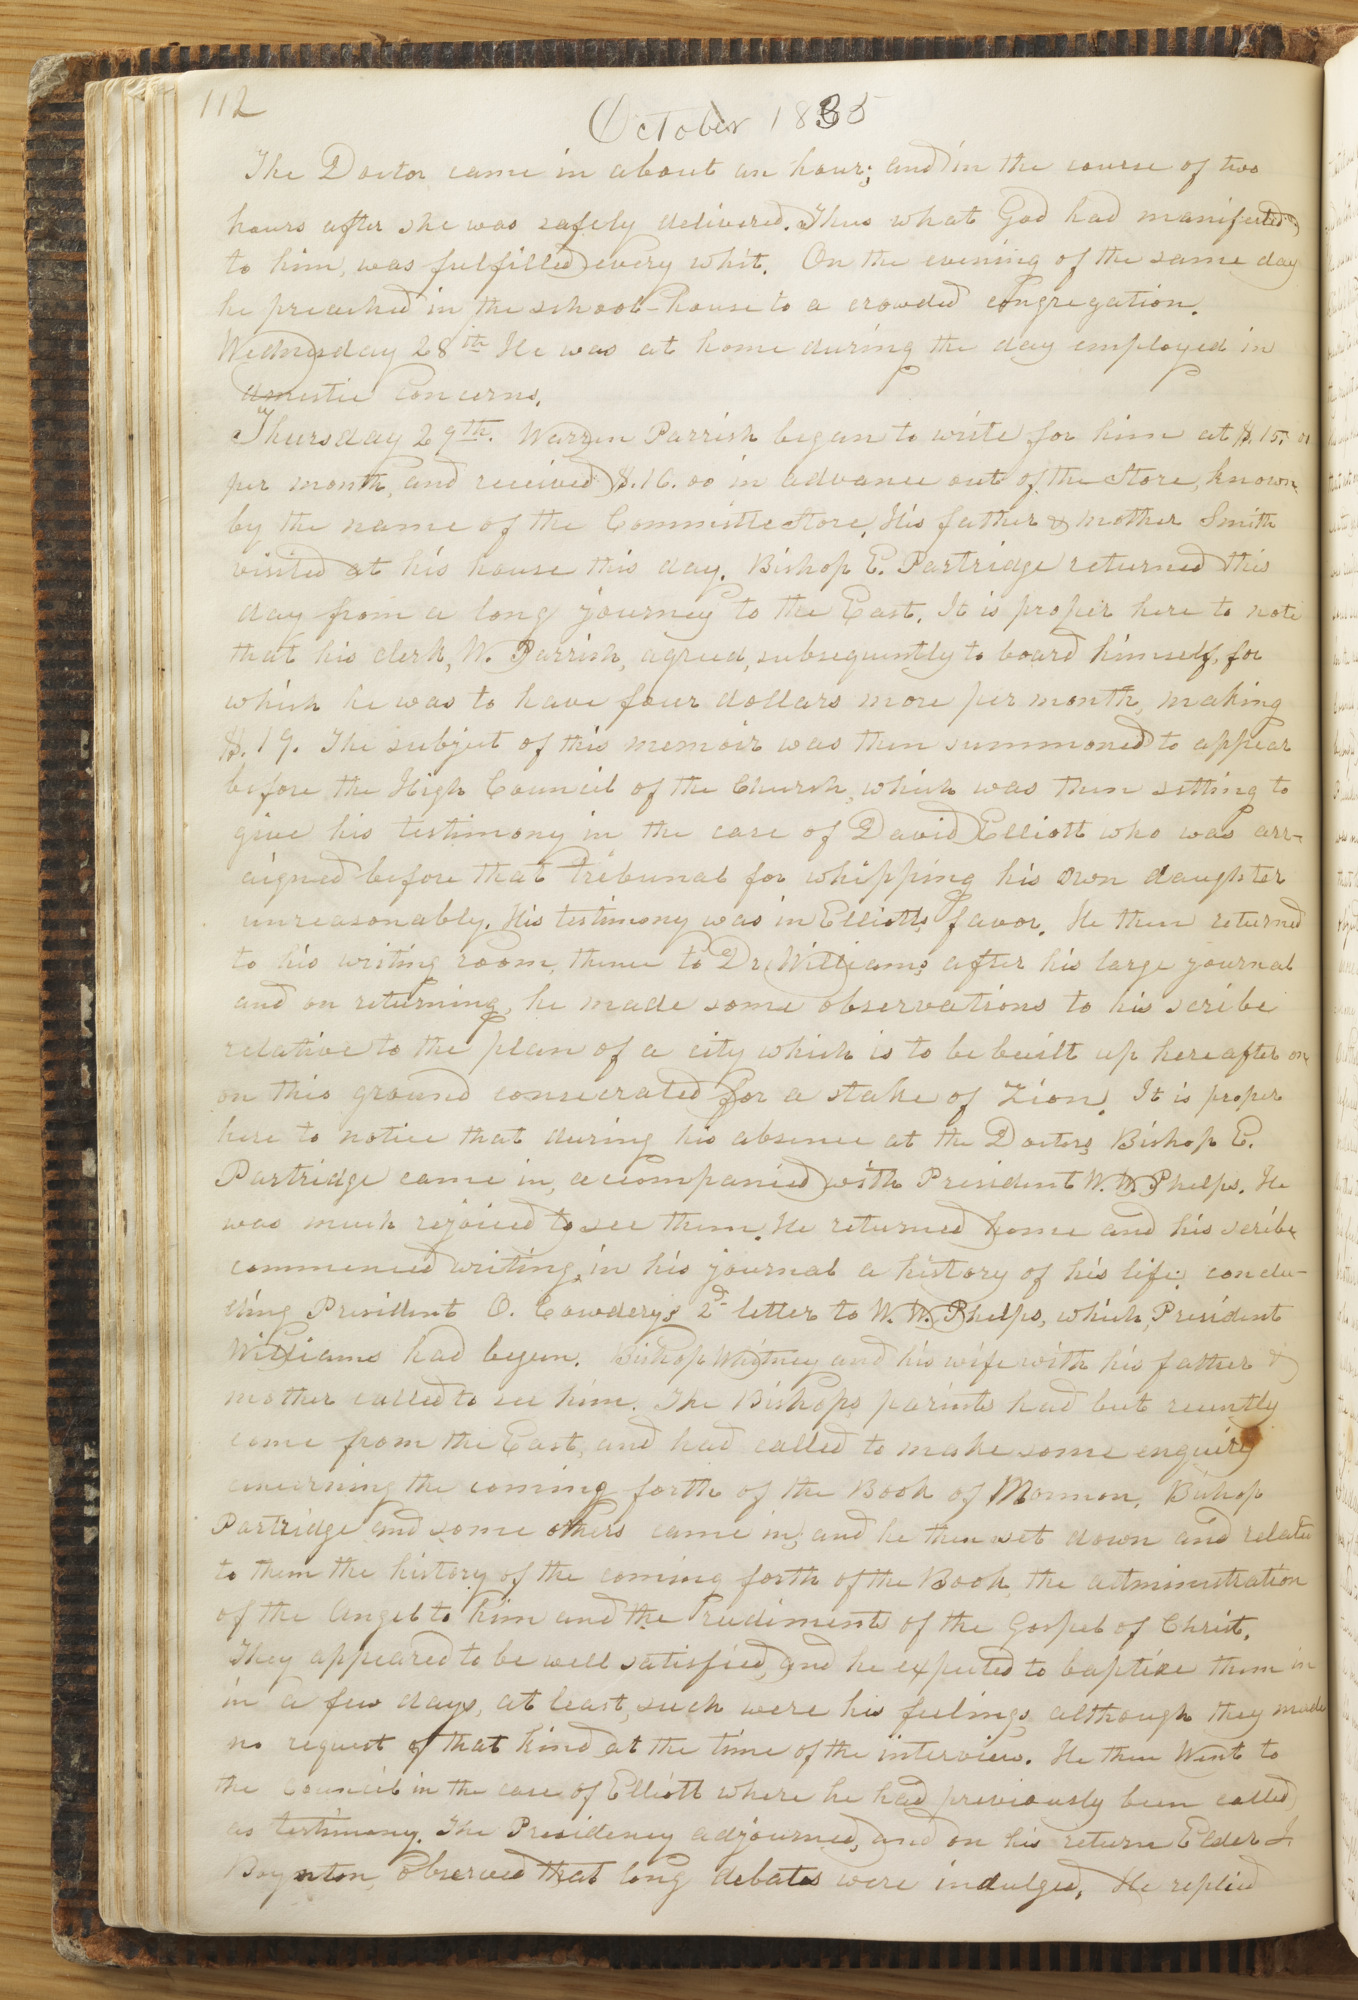 112
October 1835
The Doctor came in about an hour; and in the course of two
hours after she was safely delivered. Thus what God had manifested
to him, was fulfilled every whit. On the evening of the same day
he preached in the school-house to a crowded congregation.
Wednesday 28th He was at home during the day employed in
domestic Concerns.
Thursday 29th. Warren Parrish began to write for him at $.15. 00
per month, and received $.16.00 in advance out of the Store, known
by the name of the Committe Store. His father & mother Smith
visited at his house this day. Bishop E. Partridge returned this
day from a long journey to the East. It is proper here to note
that his clerk, W. Parrish, agreed, subsequently to board himself, for
which he was to have four dollars more per month, making
$.19. The subject of this memoir was then summoned to appear
before the High Council of the Church, which was then sitting to
give his testimony in the case of David Elliott who was arr-
aigned before that tribunal for whipping his own daughter
unreasonably. His testimony was in Elliotts favor. He then returned
to his writing room, thence to Dr. Williams after his large journal
and on returning, he made some observations to his scribe
relative to the plan of a city which is to be built up hereafter on
on this ground consecrated for a stake of Zion. It is proper
here to notice that during his absence at the Doctors Bishop E.
Partridge came in, accompanied with President W. W. Phelps. He
was much rejoiced to see them. He returned home and his scribe
commenced writing, in his journal a history of his life; conclu-
ding President O. Cowderys 2d letter to W. W. Phelps, which, President
Williams had begun. Bishop Whitney and his wife with his father &
mother called to see him. The Bishops parints had but recently
come from the East, and had called to make some enquiry
concerning the coming forth of the Book of Mormon. Bishop
Partridge and some others came in, and he then set down and relatd
to them the history of the coming forth of the Book, the administration
of the Angel to him and the rudiments of the Gospel of Christ.
They appeared to be well satisfied, and he expected to baptize them in
in a few days, at least, such were his feelings although they made
no request of that kind at the time of the interview. He then Went to
the Council in the case of Elliott where he had previously been called
as testimony. The Presidency adjourned, and on his return Elder J.
Boynton, observed that long debates were indulged. He replied